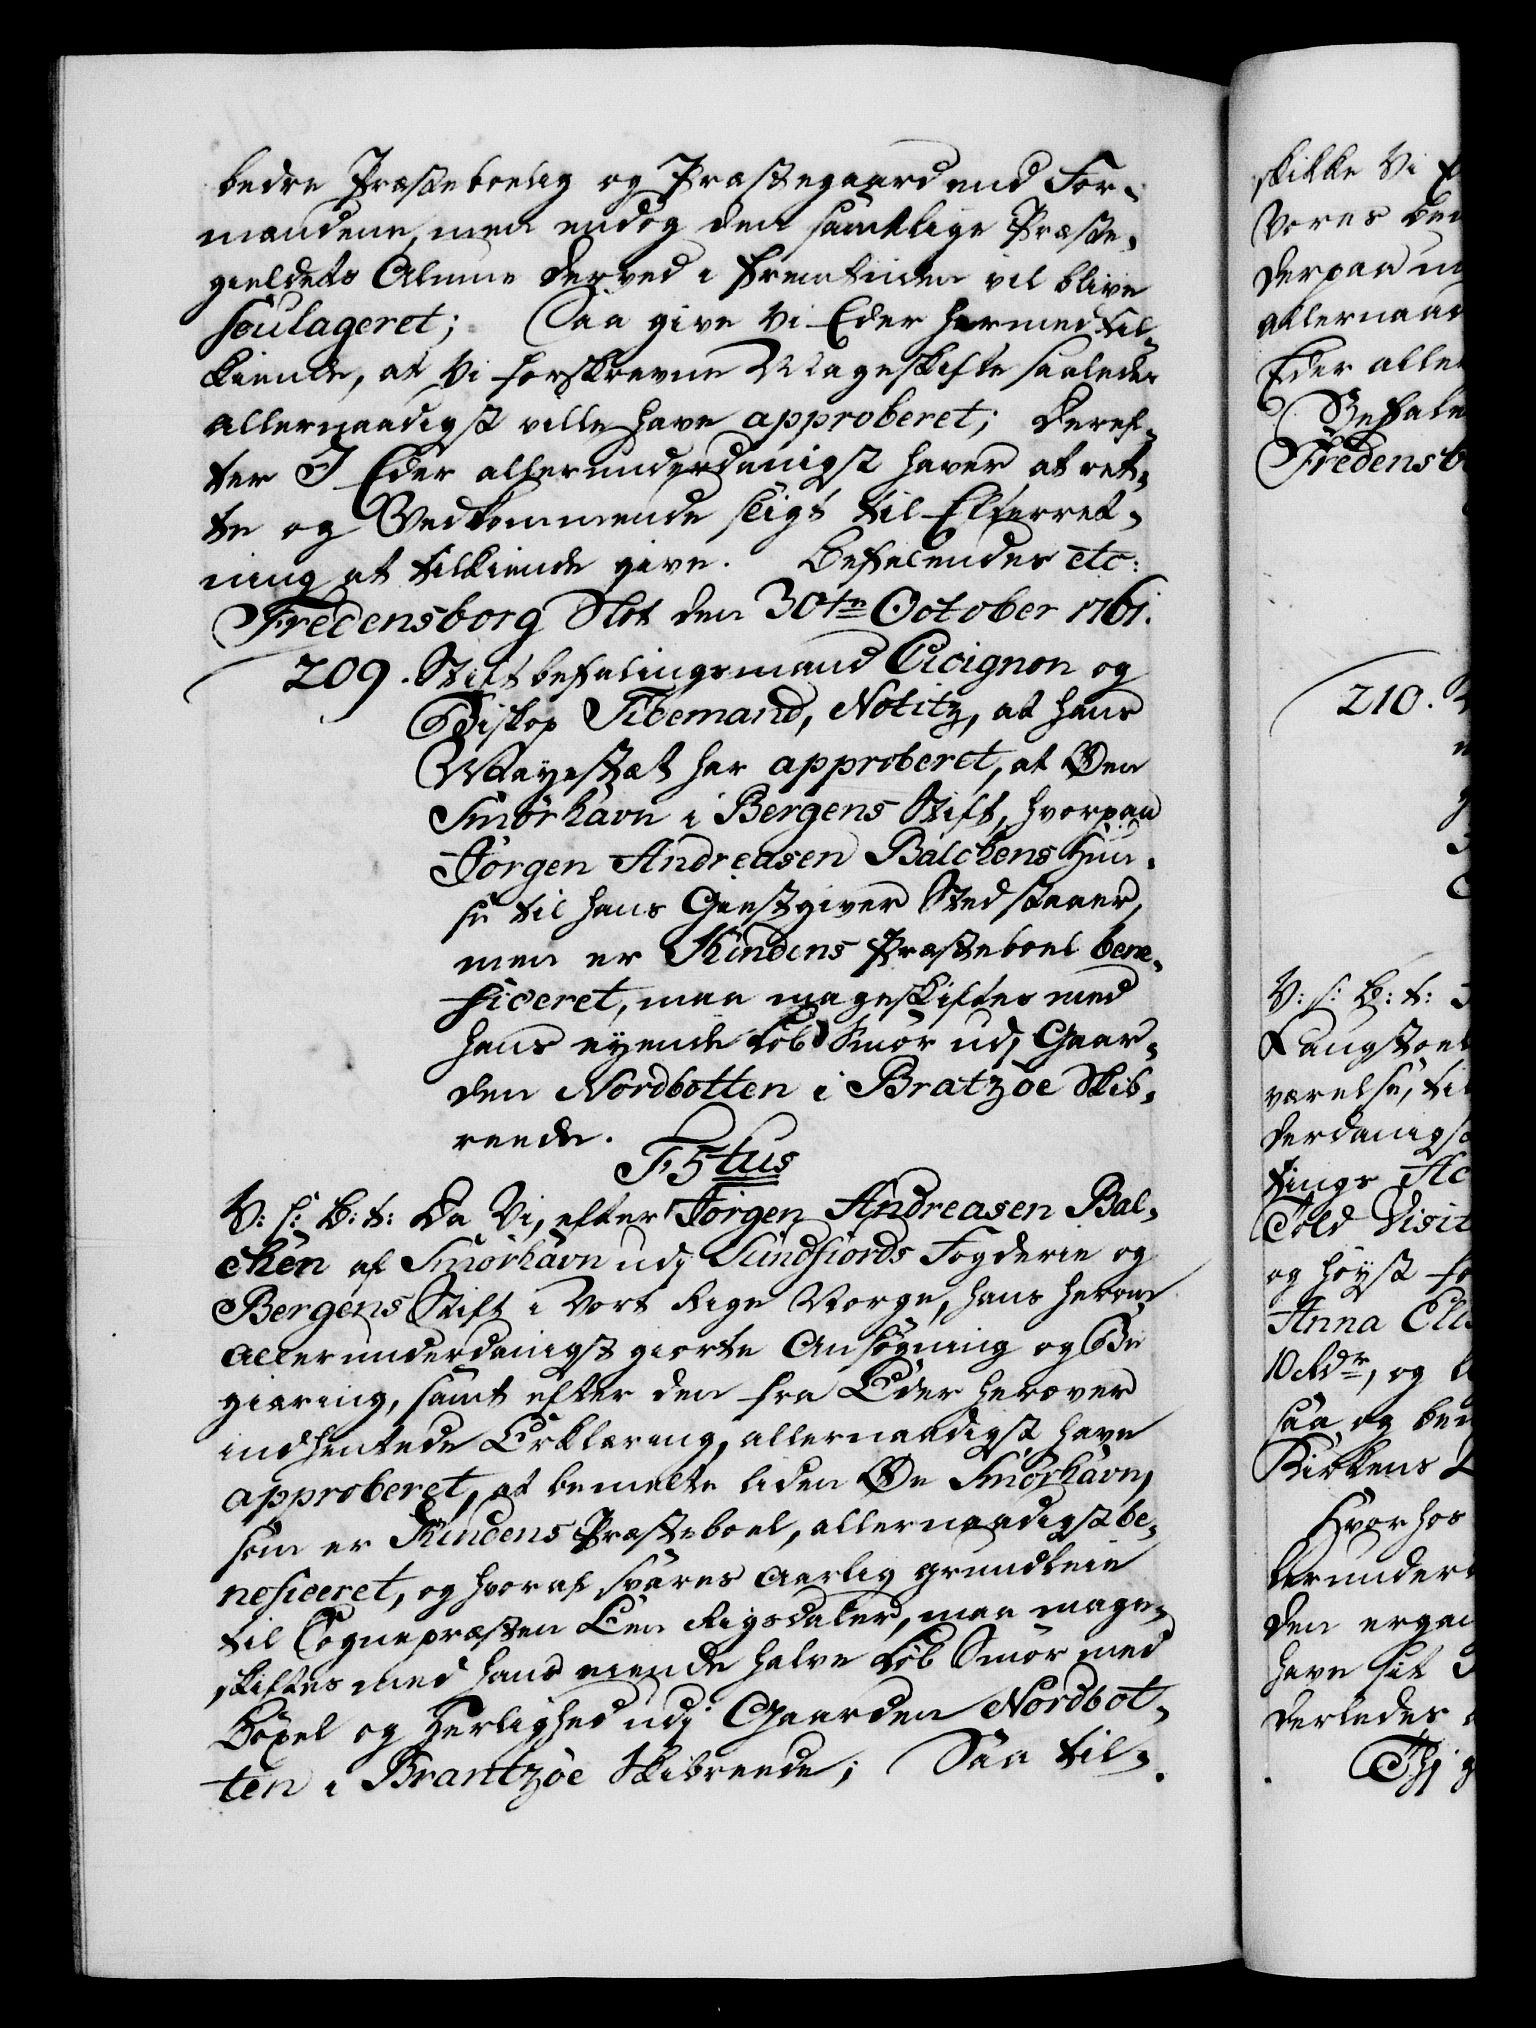 bedre Præsteboelig og Præstegaard end For-
mændene, men endog den samtlige Præste-
gieldets Almue derved i Fremtiden vil blive
soulageret; Saa give Vi Eder hermed til-
kiende, at Vi forskrevne Mageskifte saaledes
allernaadigst ville have approberet; Deref-
ter I Eder allerunderdanigst haver at ret-
te og Vedkommende sligt til Efterret-
ning at tilkiende give. Befalendes etc:
Fredensborg Slot den 30te October 1761.
209. Stiftbefalingsmand Cicignon og
Biskop Tibemand, Notitz, at Hans
Mayestæt har approberet, at Øen
Smörhavn i Bergens Stift, hvorpaa
Jörgen Andreasen Balchens Huu-
se til hans Giestgiver Sted staaer,
men er Kindens Præsteboel bene-
ficeret, maa mageskiftes med
hans eyende Löb Smör udj Gaar-
den Nordbotten i Bratzöe Skib-
reede.
F 5tus
V: s: G: t: Da Vi, efter Jörgen Andreasen Bal-
chen af Smörhavn udj Sundfiords Fogderie og
Bergens Stift i Vort Rige Norge, hans herom
allerunderdanigst giorte Ansögning og Be-
giering, samt efter den fra Eder herover
indhentede Erklæring, allernaadigst have
approberet, at bemelte liden Øe Smörhavn,
som er Kindens Præsteboel, allernaadigst be-
neficeret, og hvoraf svares aarlig grundleie
til Sognepræsten Een Rigsdaler, maa mage-
skiftes med hans eiende halve Löb Smör med
Böxel og Herlighed udj Gaarden Nordbot-
ten i Brantzöe Skibreede; Saa til-
skikke Vi
Vores
derpaa
allernaad
Eder aller
Befale
Fredensb
210.
V: s: G: t:
Langstoel
værelse, til
derdanigst
tings Ac
Told Visit
og höyst
Anna Elis
10 Rdr, og
saa og
Kirkens
Hvorhos
lerunder
den
have sit
derledes
Thj